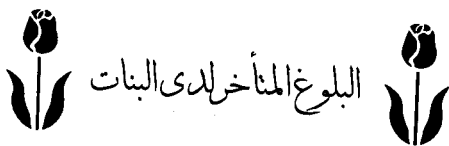 البلوغ المتأخر لدى البنات